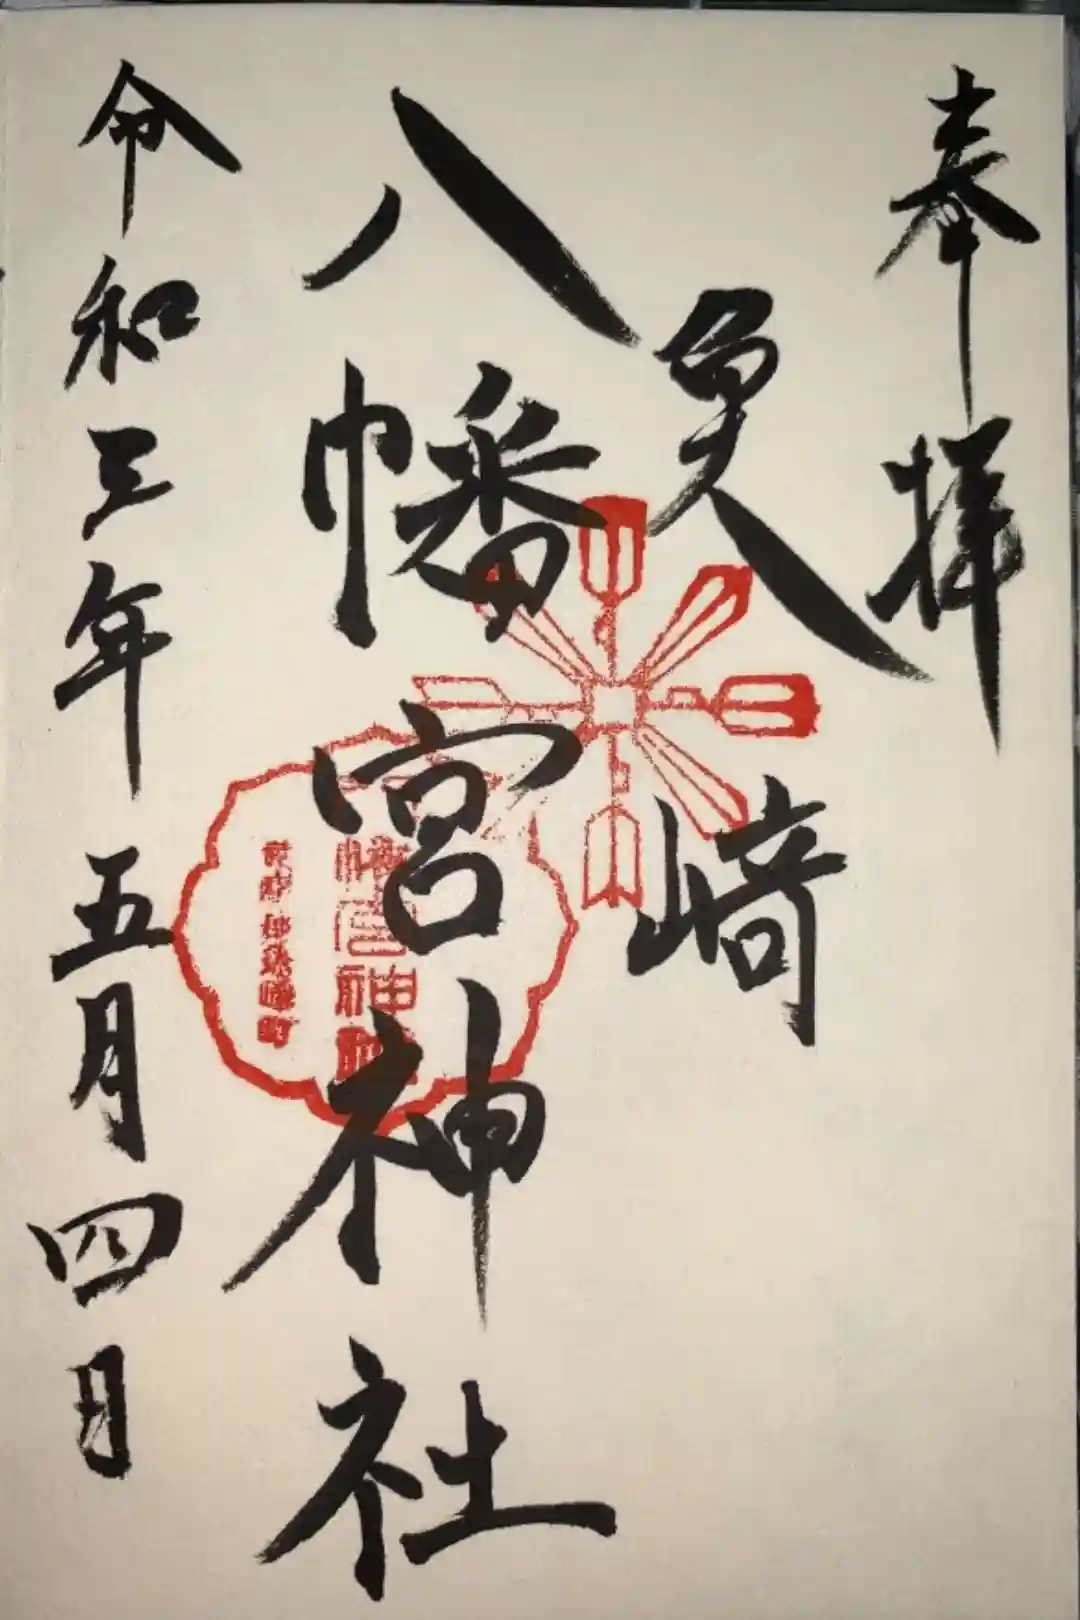 奉拝
魚﨑
八幡宮神社
令和三年五月四日